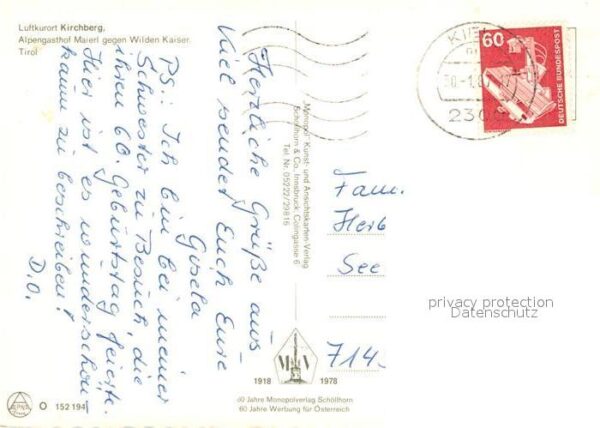 Luftkurort Kirchberg,
Alpengasthof Maierl gegen Wilden Kaiser.
Tirol
Herzliche Grüße aus-
Viel sendet Euch Eure
Gisela
PS: Ich bin bei meiner
Schwester zu Besuch, die
ihren 60. Geburtstag feierte.
Hier ist es wunderschön
kaum zu beschreiben!
D.O.
Monopol Kunst- und Ansichtskarten-Verlag
Schöllhorn & Co., Innsbruck, Colingasse 6
Tel. Nr. 05222/29816
60
DEUTSCHE BUNDESPOST
KIEL
230
Fam.
Herb
See
714
privacy protection
Datenschutz
M V
1918 1978
60 Jahre Monopolverlag Schöllhorn
60 Jahre Werbung für Österreich
O 152 194